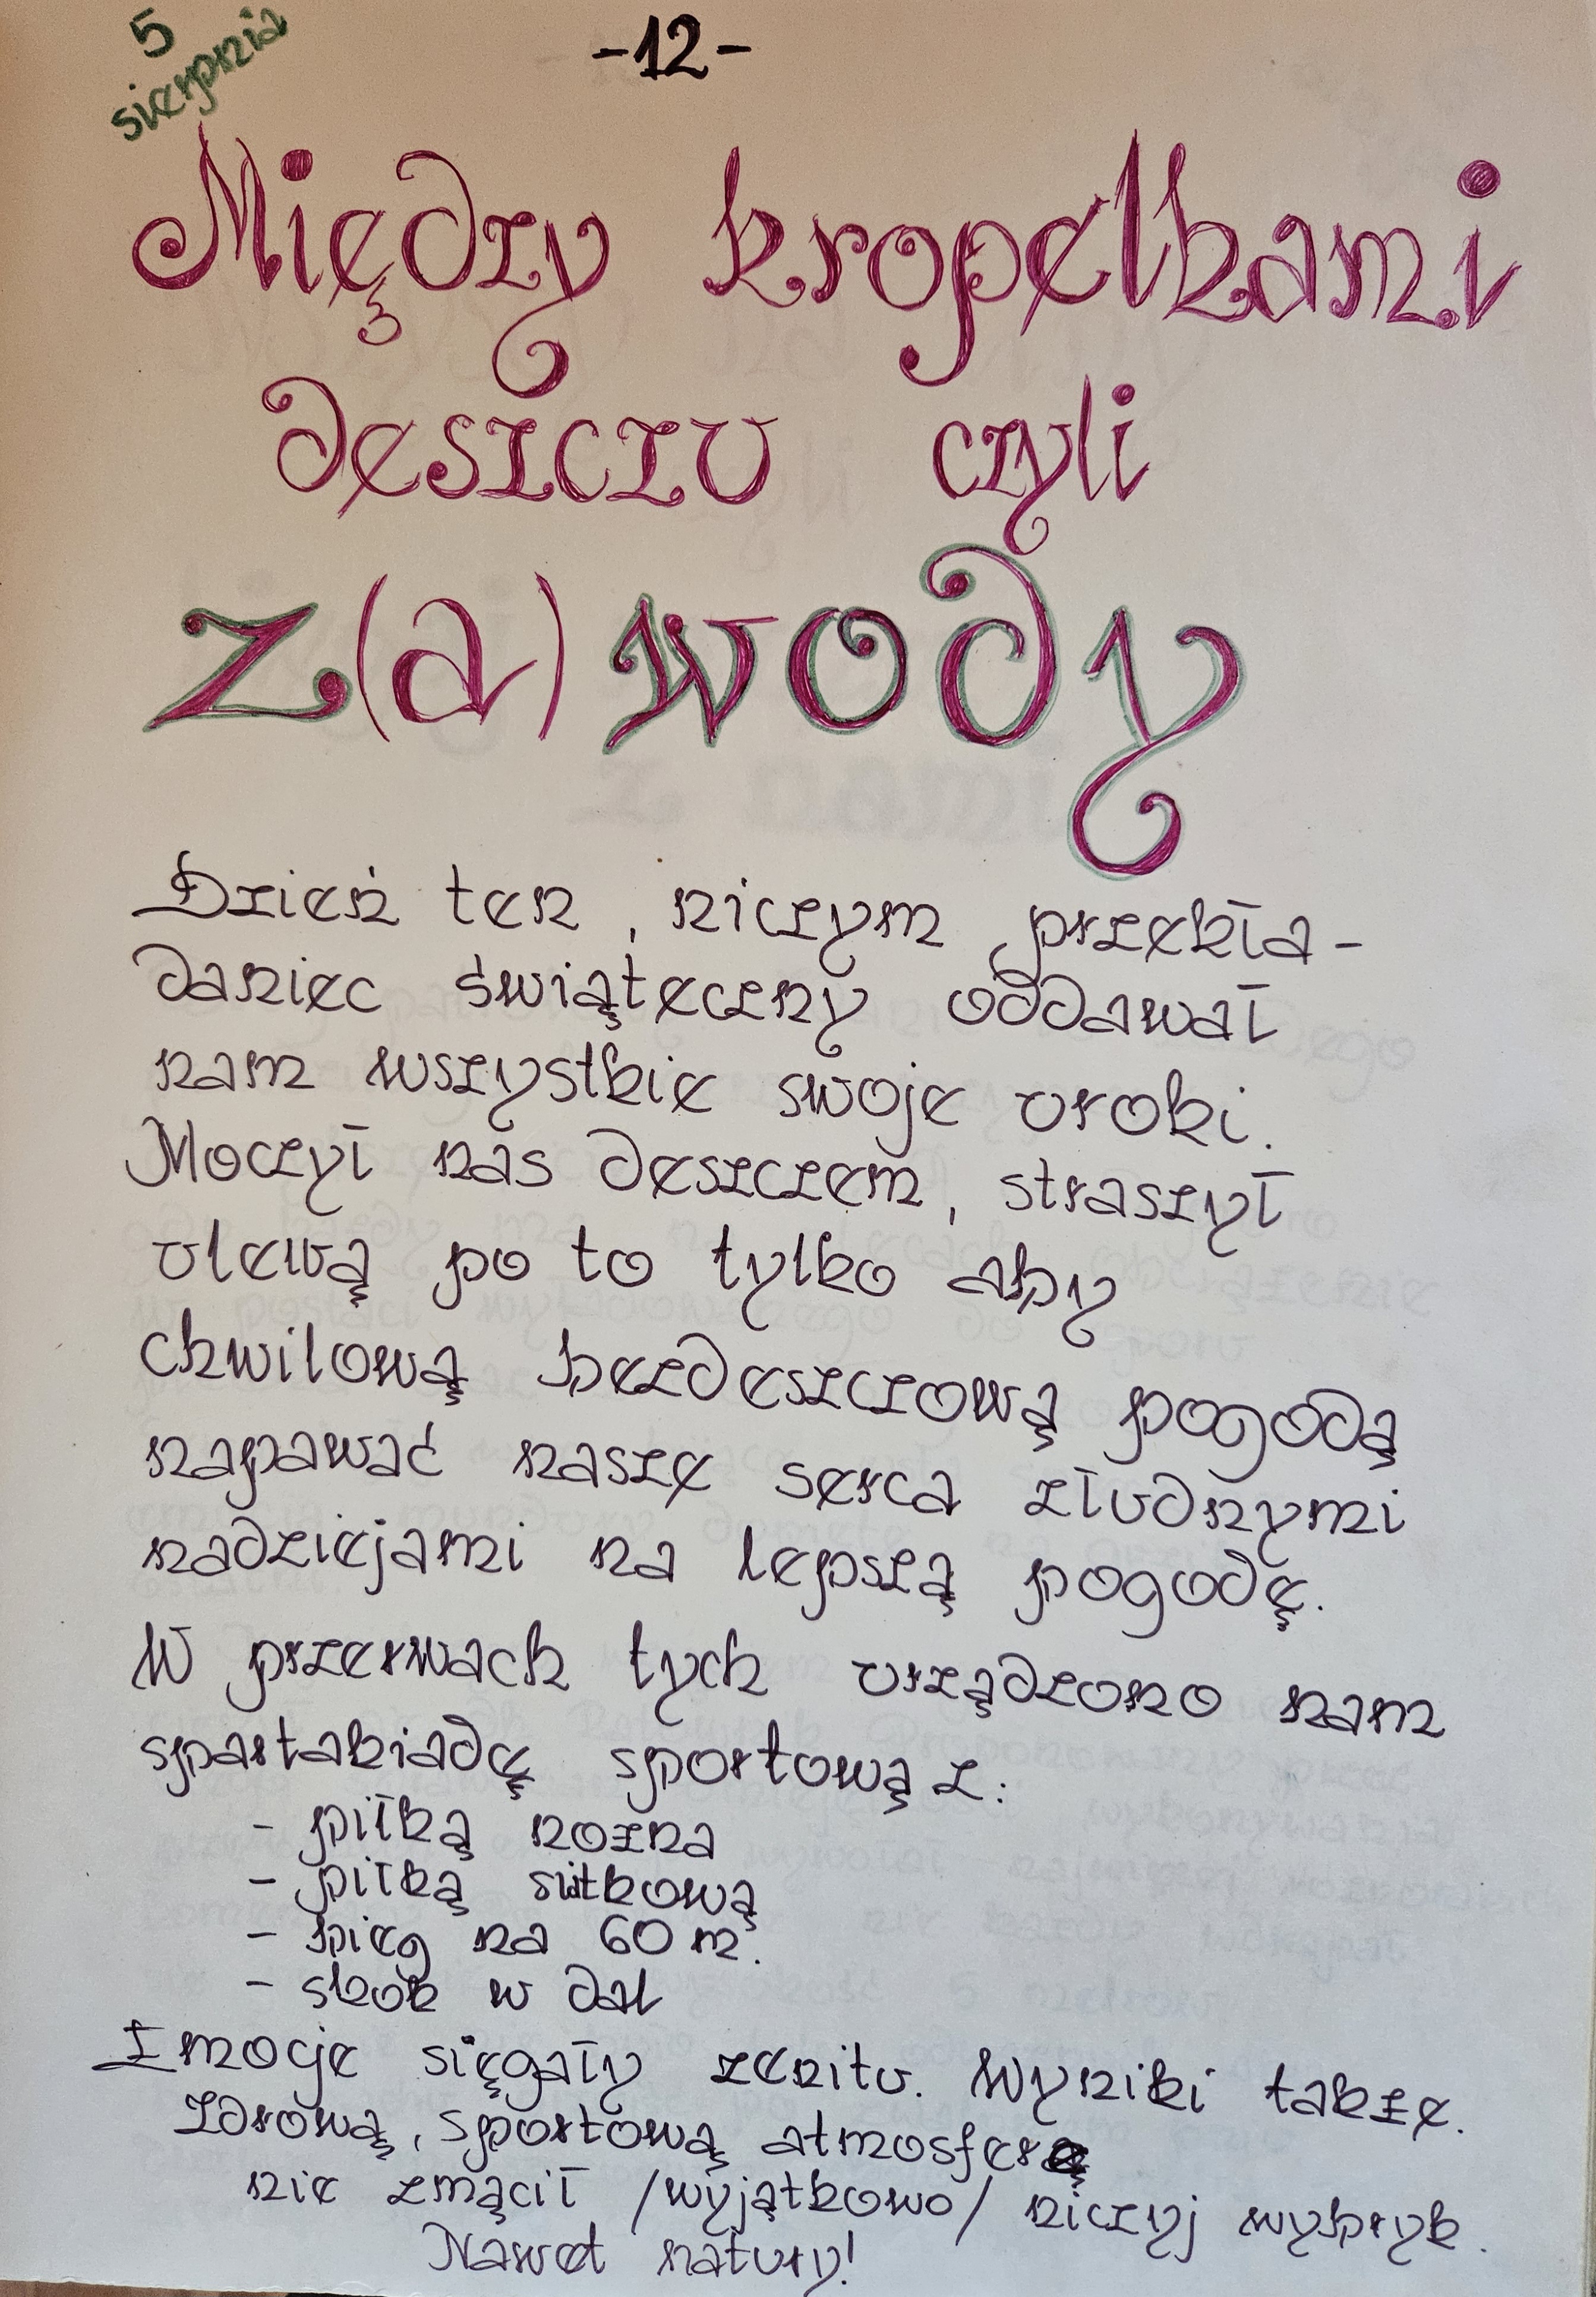 5
sierpnia
-12-
Między kropelkami
deszczu czyli
z(a)wody
Dzień ten, niczym przekła-
daniec świąteczny oddawał
nam wszystkie swoje uroki.
Moczył nas deszczem, straszył
ulewą po to tylko aby
chwilową bezdeszczową pogodą
napawać nasze serca złudnymi
nadziejami na lepszą pogodę.
W przerwach tych urządzono nam
spartakiadę sportową z:
- piłką nożna
- piłką siatkową
- bieg na 60 m.
- skok w dal
Emocje sięgały zenitu. Wyniki także.
Zdrową, sportową atmosferę
nie zmącił /wyjątkowo/ niczyj wybryk.
Nawet natury!